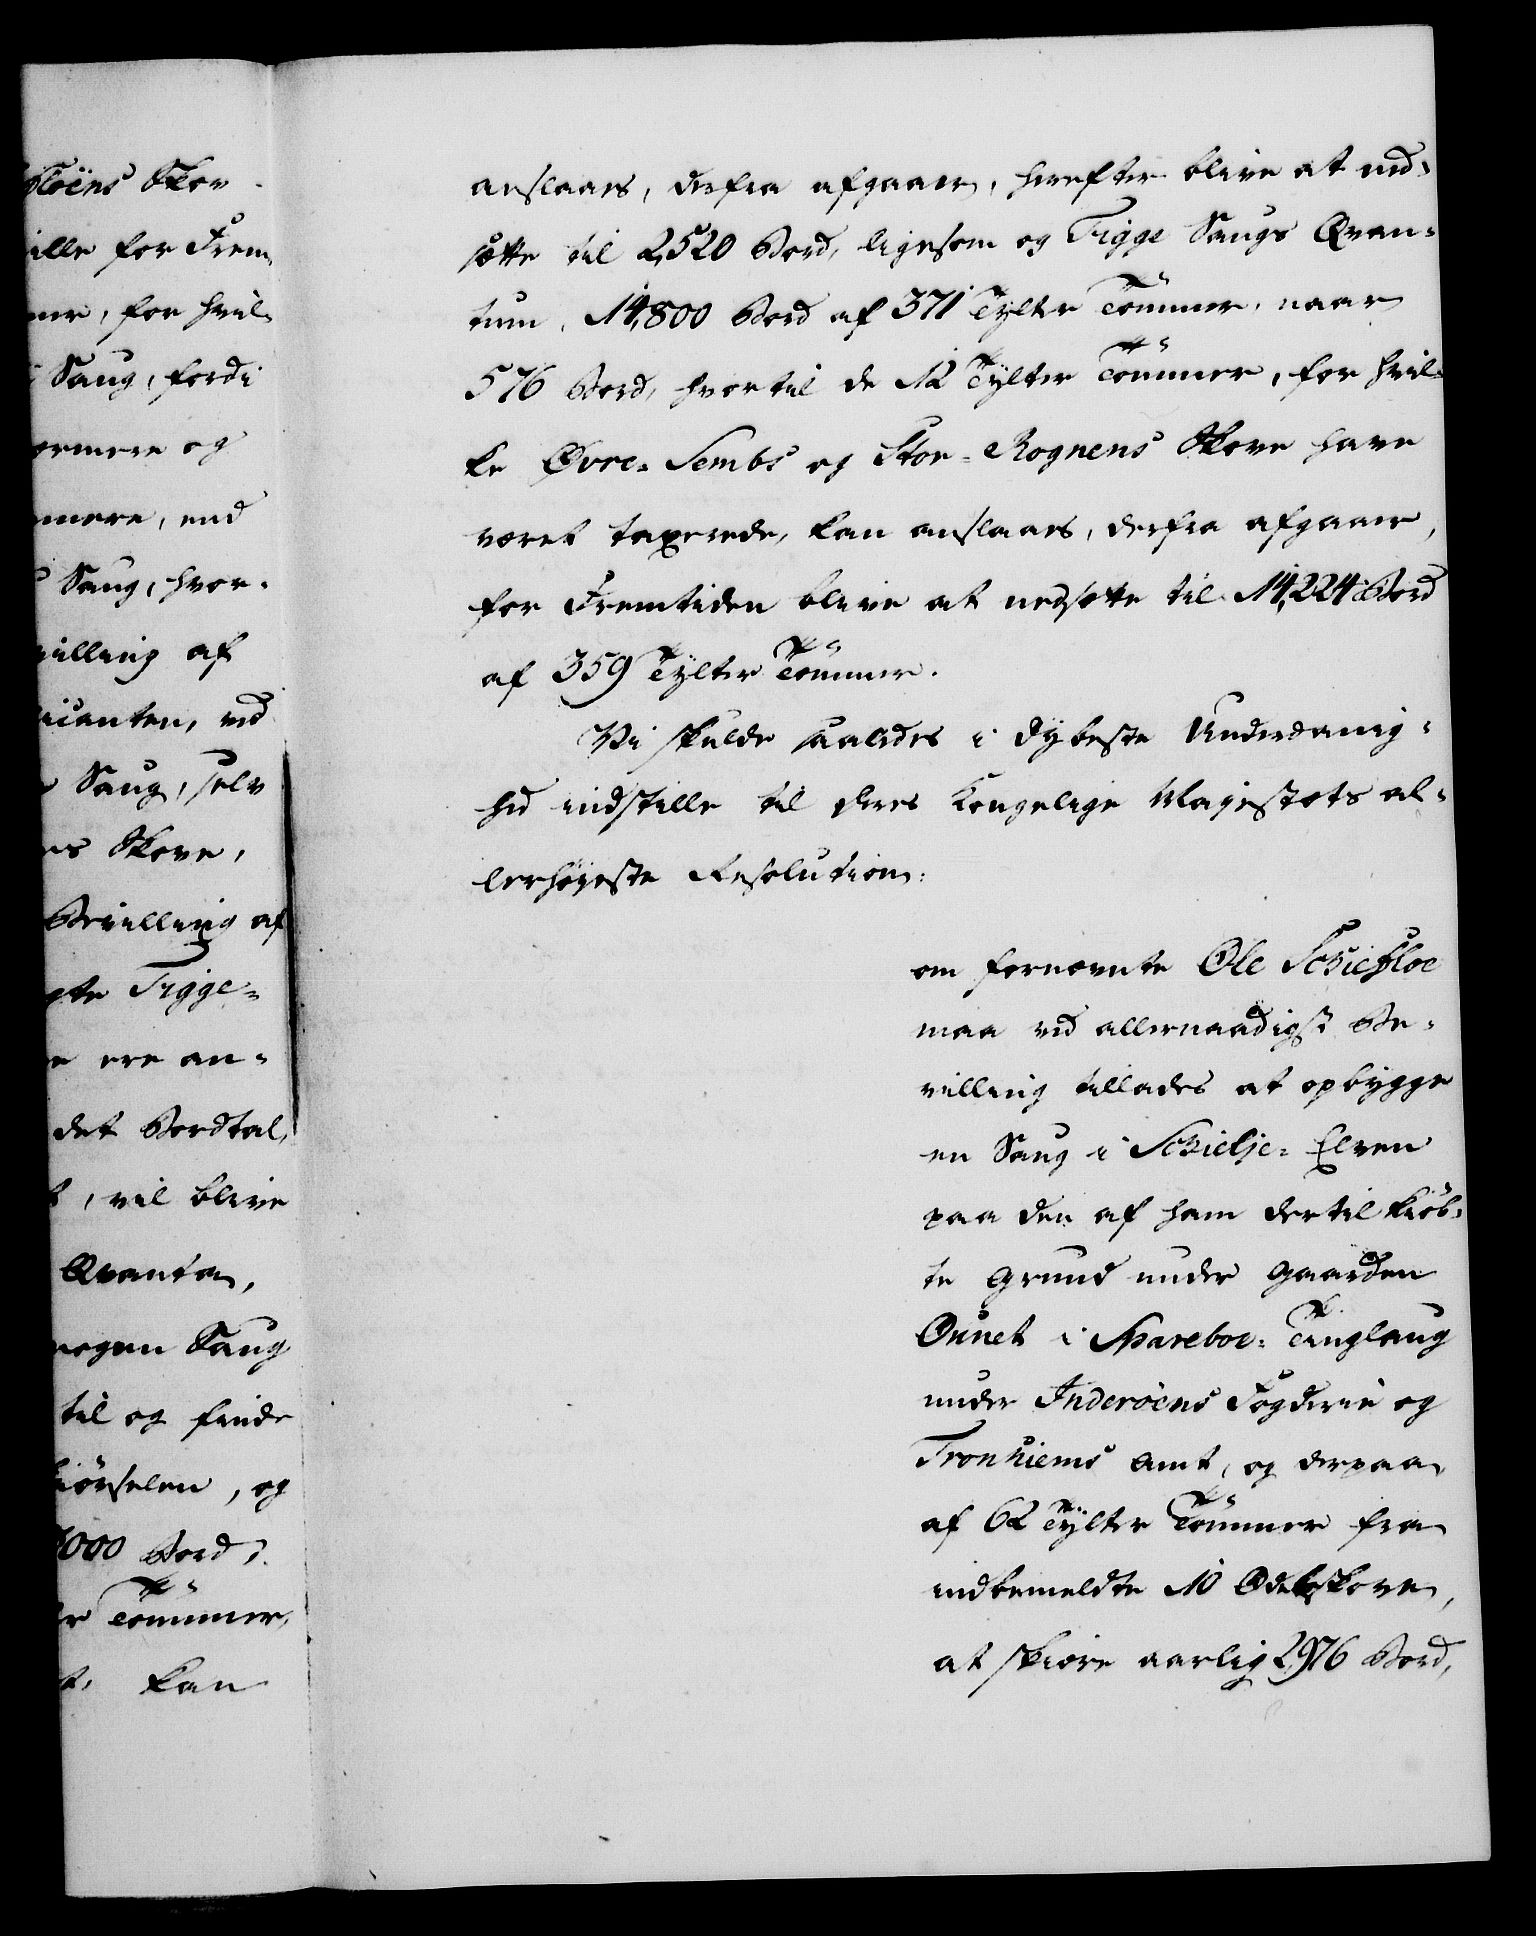 floëns Skov
ille for Frem¬
mer, for hvil¬
Saug, fordi
ermere og
mere, end
Saug, hvor¬
villing af
icanten, ved
Saug, selv
es Skove,
Bevilling af
gte Figge¬
e ere an¬
det Bordtal,
t, vil blive
Qvanta,
nogen Saug
til og finde
kiörselen, og
000 Bord,
er Tömmer,
t, kan
anslaaes, derfra afgaaer, herefter blive at ned¬
sætte til 2,520 Bord, ligesom og Figge Saugs Qvan¬
tum, 14,800 Bord af 371 Tylter Tömmer, naar
576 Bord, hvortil de 12 Tylter Tömmer, for hvil¬
ke Øvre-Sembs og Stor-Rognens Skove have
været taxerede, kan anslaaes, derfra afgaaer,
for Fremtiden blive at nedsætte til 14,224 Bord
af 359 Tylter Tömmer.
Vi skulde saaledes i dybeste Underdanig¬
hed indstille til Deres Kongelige Majestæts al¬
lerhöyeste Resolution:
om fornævnte Ole Schiefloe
maa ved allernaadigst Be¬
villing tillades at opbygge
en Saug i Schielje-Elven
paa den af ham dertil kiöb¬
te Grund under Gaarden
Qunet i Spareboe-Tinglaug
under Inderöens Fogderie og
Tronhiems Amt, og derpaa
af 62 Tylter Tömmer fra
indbemeldte 10 Odelsskove,
at skiære aarlig 2,976 Bord,